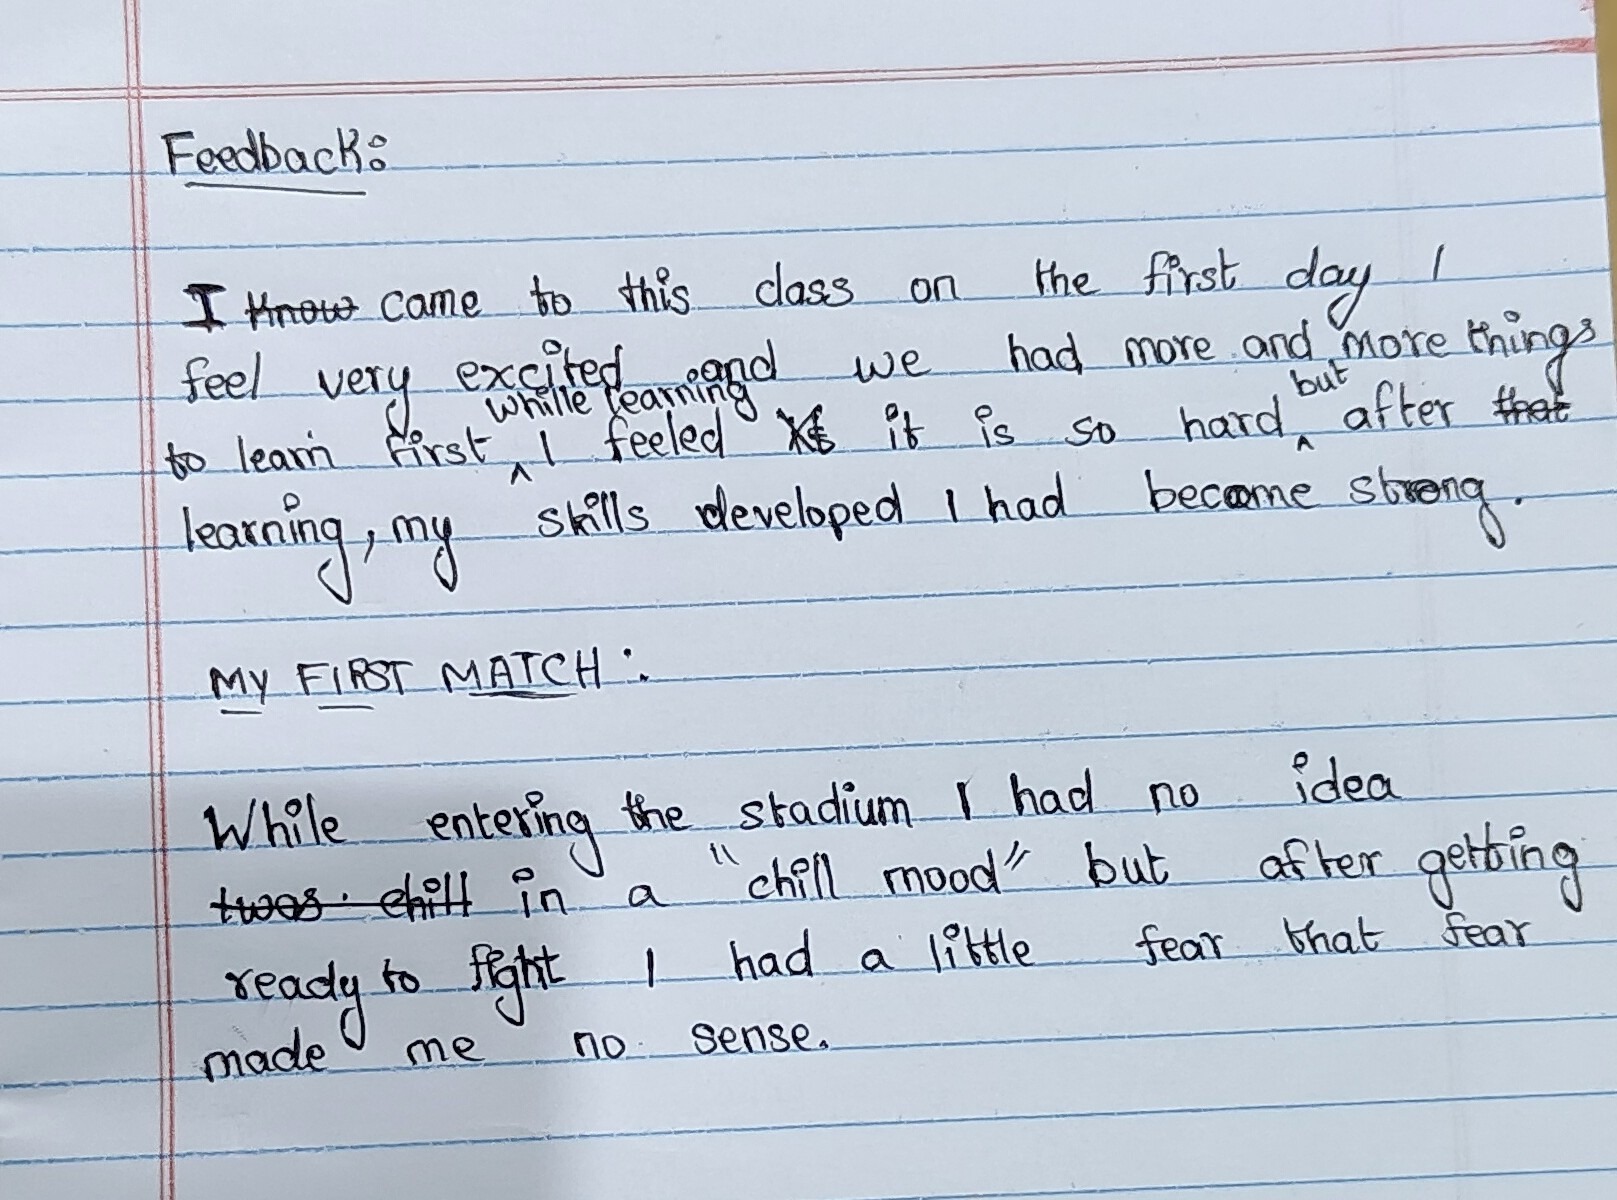 Feedback:
I know came to this class on the first day I
feel very excited and we had more and more things
to learn first while learning I feeled it is so hard but after that
learning, my skills developed I had become strong.
MY FIRST MATCH:
While entering the stadium I had no idea
twas chill in a "chill mood" but after getting
ready to fight I had a little fear that fear
made me no sense.